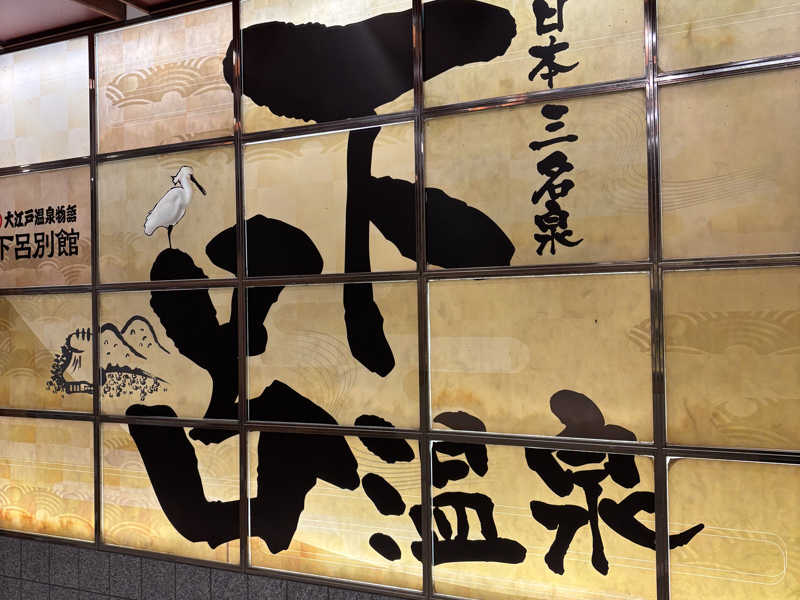 日本三名泉
下呂
温泉
大江戸温泉物語
下呂別館